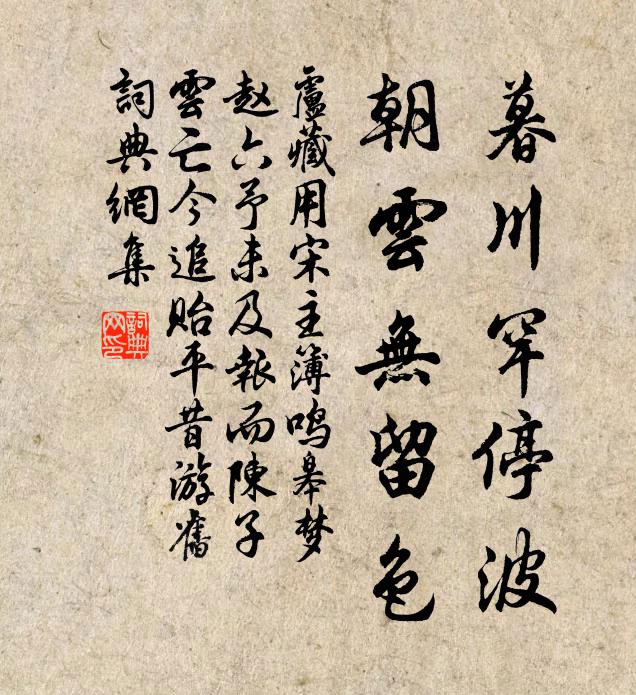 暮川罕停波
朝雲無留色
盧藏用宋主簿鳴皋梦
赵六予未及報而陳子
雲亡今追貽平昔游舊
詞典網集
詞典
网印